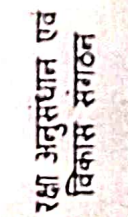 रक्षा अनुसंधान एवं
विकास संगठन